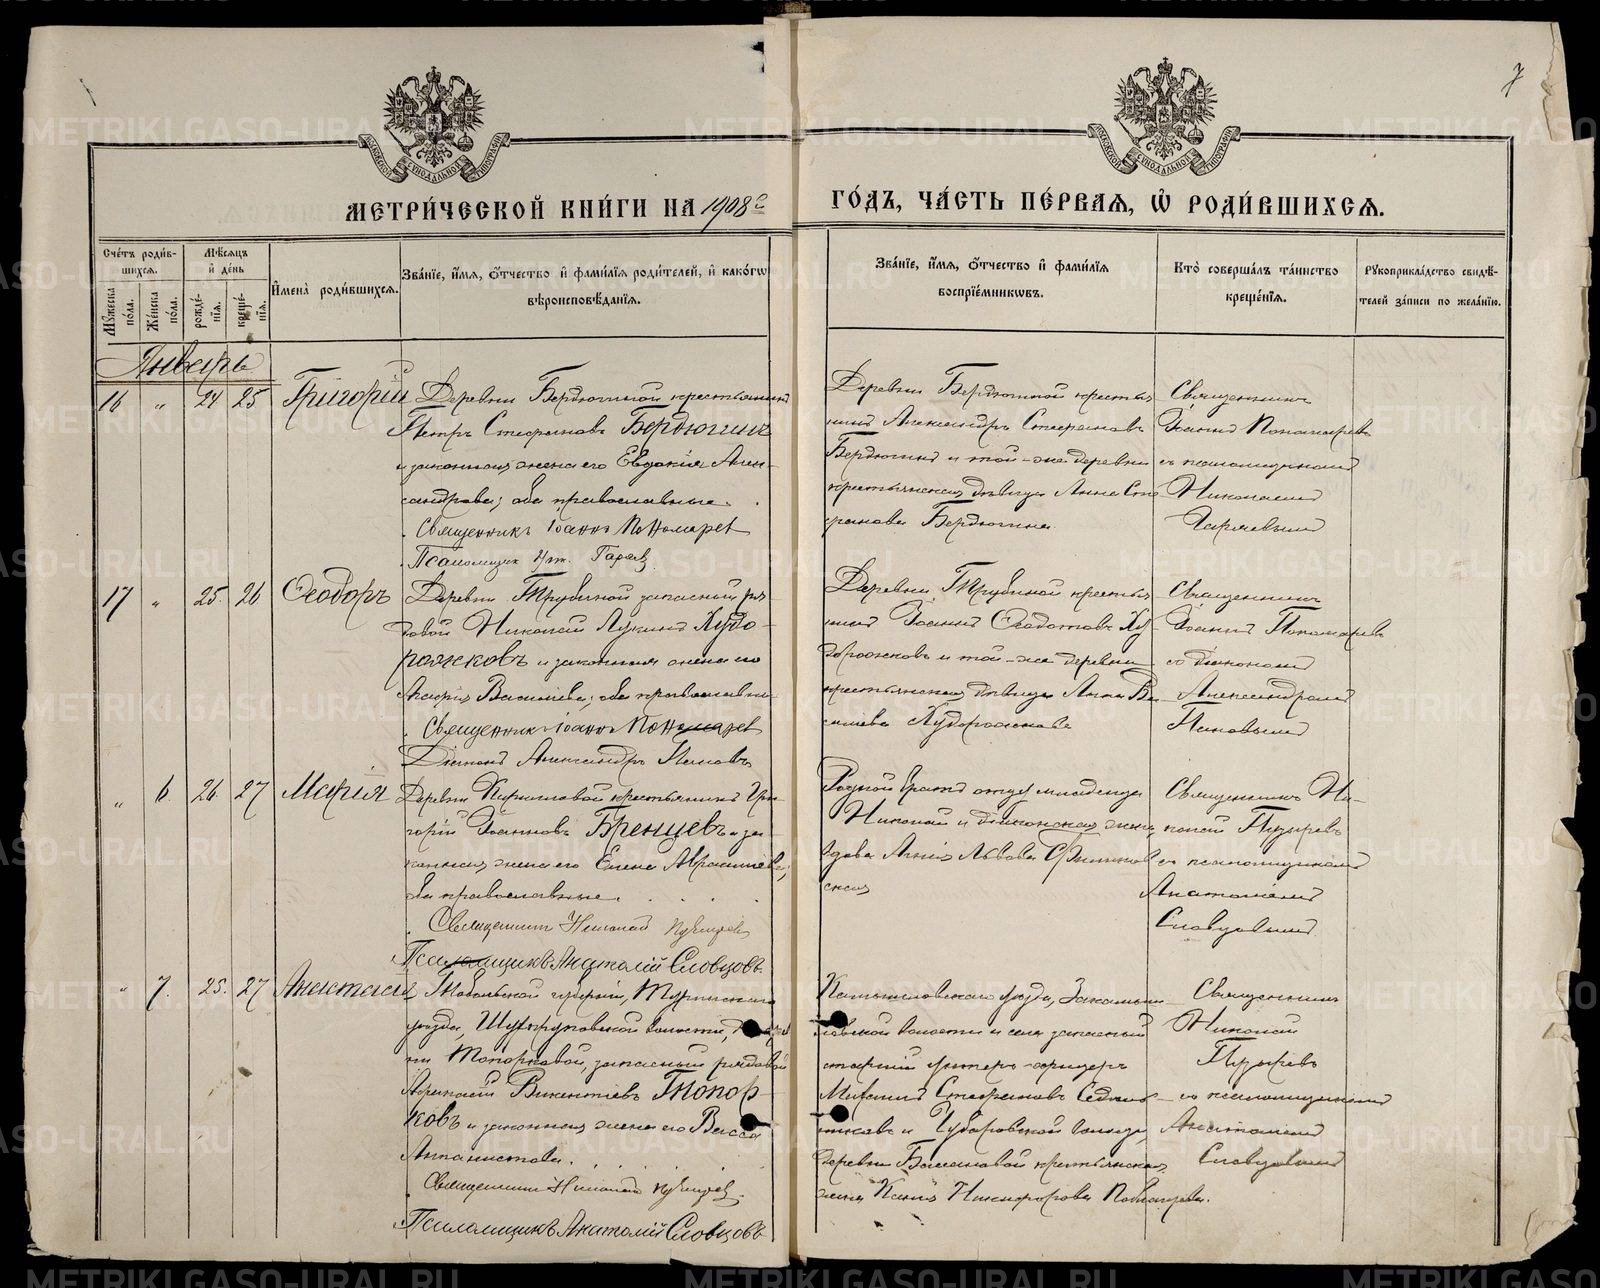 7
МЕТРИ́ЧЕСКОЙ КНИ́ГИ НА 1908й ГО́ДЪ, ЧА́СТЬ ПЕ́РВАЯ, Ѡ҆ РОДИ́ВШИХСЯ.
Сче́тъ роди́вшихся.
Му́жеска по́ла.
Же́нска по́ла.
Мѣ́сяцъ и҆ де́нь
рожде́нїя.
креще́нїя.
И҆мена̀ роди́вшихся.
Зва́нїе, и҆́мя, ѻ҆́тчество и҆ фами́лїя роди́телей, и҆ како́гѡ
вѣроисповѣ́данїя.
Зва́нїе, и҆́мя, ѻ҆́тчество и҆ фами́лїя
воспрїе́мникѡвъ.
Кто̀ соверша́лъ та́инство
креще́нїя.
Рукоприкла́дство свидѣ́-
телей за́писи по жела́нїю.
Январь
16 „ 24 25 Григорій
Деревни Бердюгиной крестьянинъ
Петръ Стефановъ Бердюгинъ
и законная жена его Евдокія Алек-
сандрова; оба православные.
Священникъ Іоаннъ Пономарев
Псаломщик Ник. Гаряев
Деревни Бердюгиной крестья-
нинъ Александръ Стефановъ
Бердюгинъ и той-же деревни
крестьянская дѣвица Анна Сте-
фанова Бердюгина.
Священникъ
Іоаннъ Пономаревъ
съ псаломщикомъ
Николаемъ
Гаряевымъ
17 „ 25. 26 Ѳеодоръ
Деревни Трубиной запасный ря-
довой Николай Лукинъ Худо-
рожковъ и законная жена его
Агафія Васильева; оба православные
Священникъ Іоаннъ Пономарев
Діаконъ Александръ Поповъ
Деревни Трубиной крестья-
нинъ Іоаннъ Ѳедотовъ Ху-
дорожковъ и той-же деревни
крестьянская дѣвица Анна Ва-
сильева Худорожкова
Священникъ
Іоаннъ Пономаревъ
съ діакономъ
Александромъ
Поповымъ
„ 6. 26. 27 Марія
Деревни Кирилловой крестьянинъ Гри-
горій Іоанновъ Бренцевъ и за-
конная жена его Елена
оба православные.
Священникъ Николай Пузыревъ
Псаломщикъ Анатолій Словцовъ.
Родной братъ отца младенца
Николай и діаконская жена
вдова Анна Львова
Священникъ Ни-
колай Пузыревъ
съ псаломщикомъ
Анатоліемъ
Словцовымъ
„ 7. 25. 27 Анастасія
Тобольской губерніи, Туринскаго
уѣзда, волости, дерев-
ни Топорковой, запасный рядовой
Викентіевъ Топор-
ковъ и законная жена его Васса
Священникъ Николай Пузыревъ.
Псаломщикъ Анатолій Словцовъ
Камышловскаго уѣзда, Закамыш-
ловской волости и села запасный
старшій унтеръ-офицеръ
Стефановъ
и волости,
деревни крестьянская
жена Никифорова
Священникъ
Николай
Пузыревъ
съ псаломщикомъ
Анатоліемъ
Словцовымъ